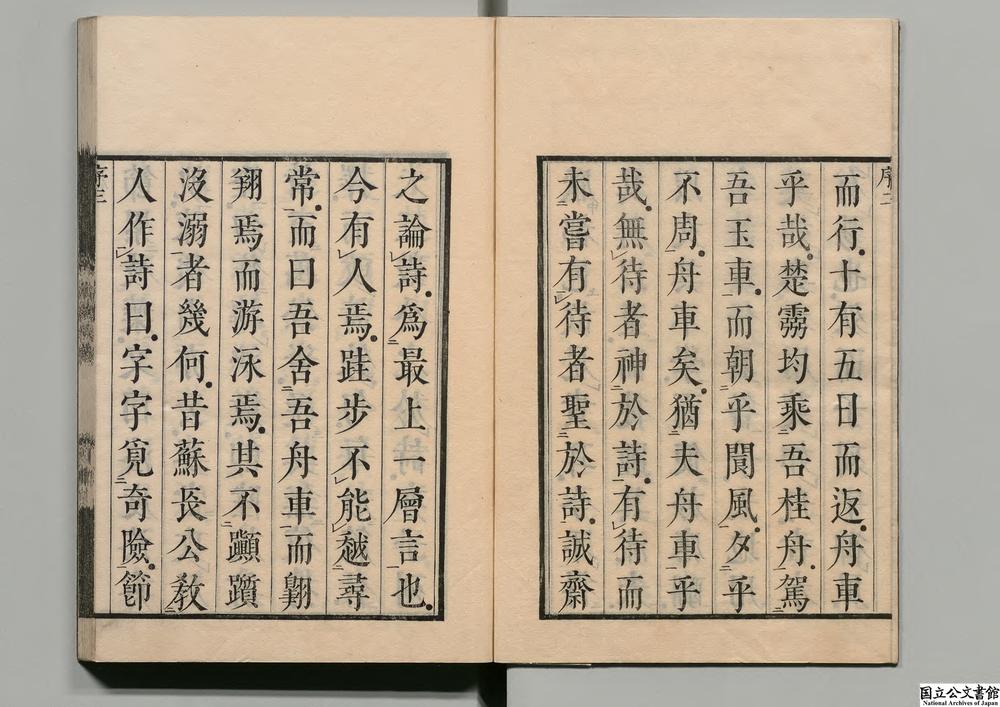 序二
而行十有五日而返舟車
乎哉楚霛均乘吾桂舟駕
吾玉車而朝乎閬風夕乎
不周舟車矣猶夫舟車乎
哉無待者神於詩有待而
未嘗有待者聖於詩誠齋
之論詩爲最上一層言也
今有人焉跬步不能越尋
常而曰吾舍吾舟車而翺
翔焉而游泳焉其不蹎躓
沒溺者幾何昔蘇長公教
人作詩曰字字覓奇險節
序三
国立公文書館
National Archives of Japan